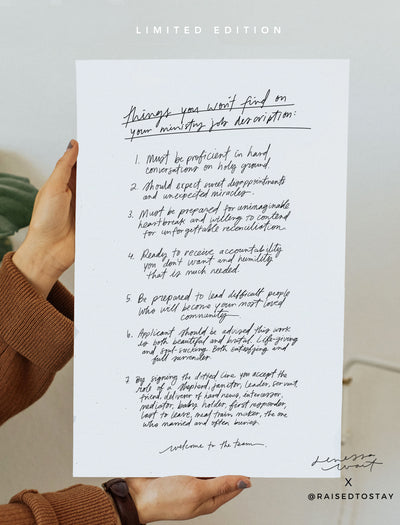 LIMITED EDITION
Things you won't find on
your ministry job description:
1. Must be proficient in hard
conversations on holy ground
2. Should expect sweet disappointments
and unexpected miracles.
3. Must be prepared for unimaginable
heartbreak and willing to contend
for unforgettable reconciliation.
4. Ready to receive accountability
you don't want and humility
that is much needed.
5. Be prepared to lead difficult people
who will become your most loved
community.
6. Applicant should be advised this work
is both beautiful and brutal. Life-giving
and soul-sucking. Both satisfying and
full surrender.
7. By signing the dotted line you accept the
role of a shepherd, janitor, leader, servant
friend, deliverer of hard news, intercessor,
mediator, baby holder, first responder,
last to leave, meal train maker, the one
who married and often buries.
welcome to the team
Wait
X
@RAISEDTOSTAY